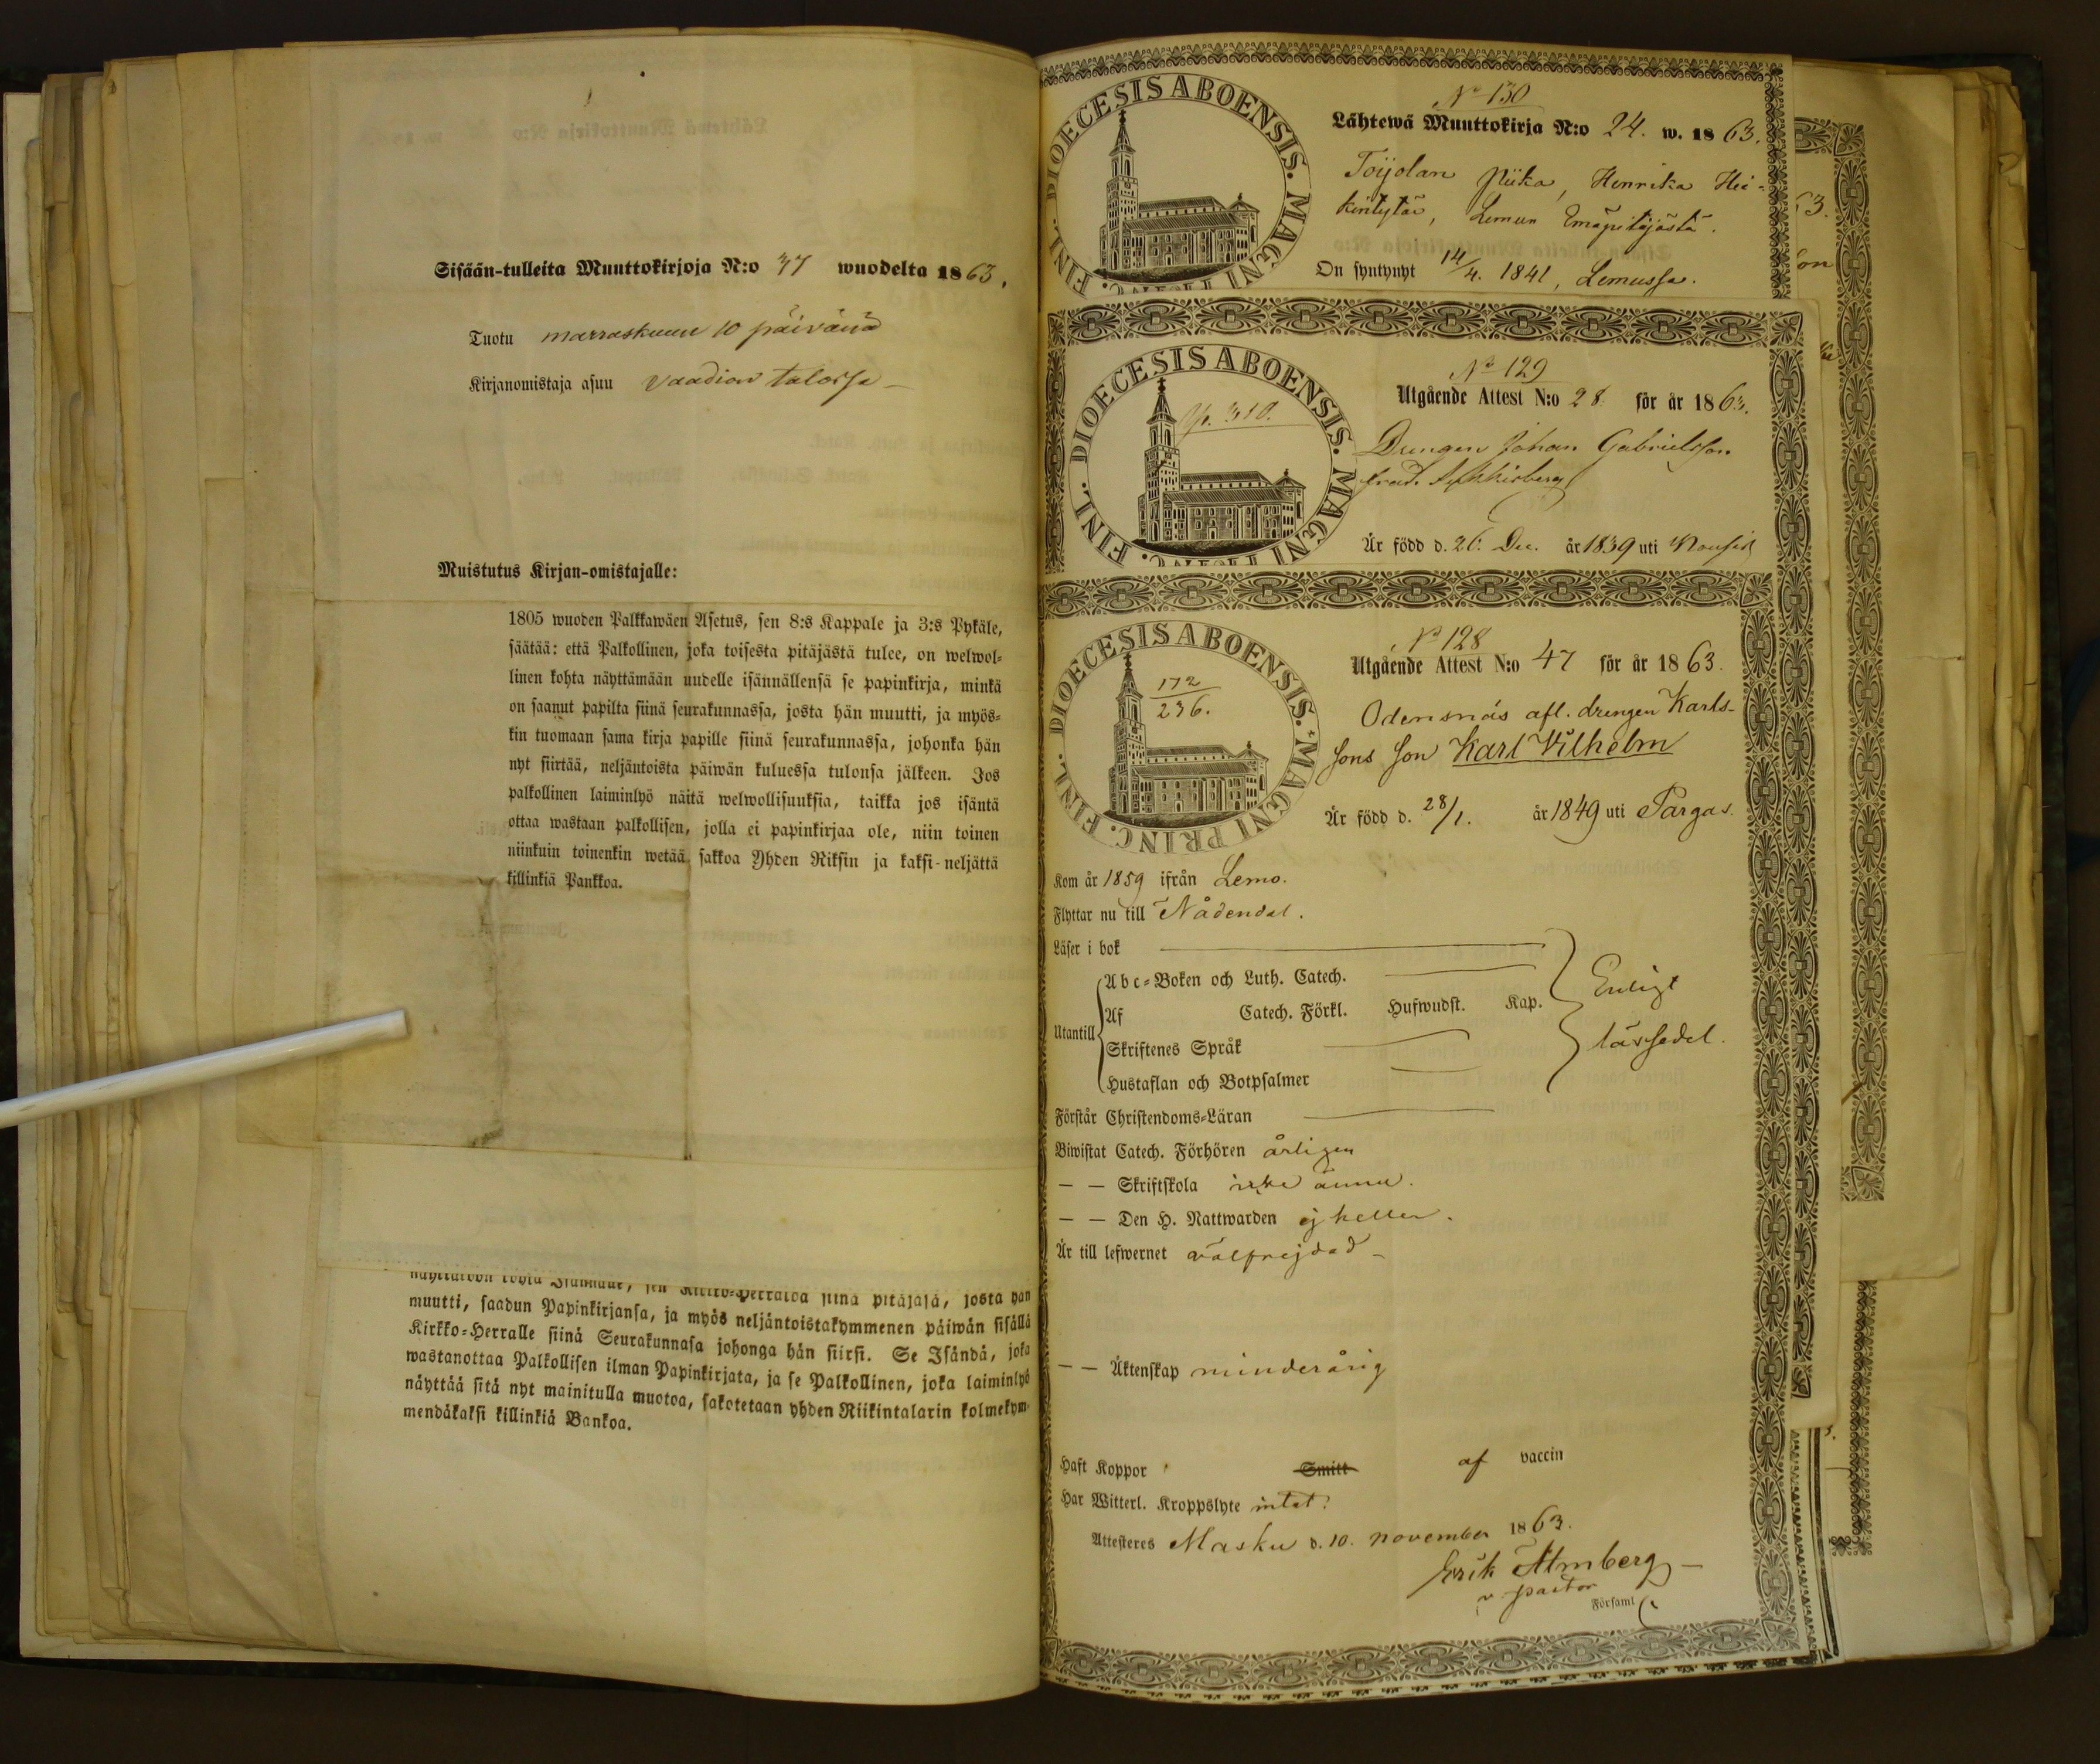 Sisään-tulleita Muuttokirjoja N:o 47 wuodelta 1863.
Tuotu marraskuun 10 päivänä
Kirjanomistaja asuu Vaadian talossa
Muistutus Kirjan-omistajalle:
1805 wuoden Palkkawäen Asetus, sen 8:s Kappale ja 3:s Pykäle,
säätää: että Palkollinen, joka toisesta pitäjästä tulee, on welwol-
linen kohta näyttämään uudelle isännällensä se papinkirja, minkä
on saanut papilta siinä seurakunnassa, josta hän muutti, ja myös-
kin tuomaan sama kirja papille siinä seurakunnassa, johonka hän
nyt siirtää, neljäntoista päiwän kuluessa tulonsa jälkeen. Jos
palkollinen laiminlyö näitä welwollisuuksia, taikka jos isäntä
ottaa wastaan palkollisen, jolla ei papinkirjaa ole, niin toinen
niinkuin toinenkin wetää sakkoa Yhden Riksin ja kaksi-neljättä
killinkiä Pankkoa.
siinä pitäjäsä, josta hän
muutti, saadun Papinkirjansa, ja myös neljäntoistakymmenen päiwän sisällä
Kirkko-Herralle siinä Seurakunnasa johonga hän siirsi. Se Isändä, joka
wastanottaa Palkollisen ilman Papinkirjata, ja se Palkollinen, joka laiminlyö
näyttää sitä nyt mainitulla muotoa, sakotetaan yhden Riikintalarin kolmekym-
mendäkaksi killinkiä Bankoa.
DIOECESIS ABOENSIS. MAGNI PRINC. FINL.
No 130
Lähtewä Muuttokirja N:o 24. w. 1863.
Toijolan piika, Henrika Hei-
kintytär, Lemun Emäpitäjästä.
On syntynyt 14/4. 1841, Lemussa.
DIOECESIS ABOENSIS. MAGNI PRINC. FINL.
p. 310.
No 129
Utgående Attest N:o 28 för år 1863.
Drengen Johan Gabrielsson
Är född d. 26. Dec. år 1839 uti Nousis
DIOECESIS ABOENSIS. MAGNI PRINC. FINL.
172
236.
No 128
Utgående Attest N:o 47 för år 1863.
Odensnäs afl. drengen Karls-
sons son Karl Vilhelm
Är född d. 28/1. år 1849 uti Pargas.
Kom år 1859 ifrån Lemo.
Flyttar nu till Nådendal.
Läser i bok
Utantill
Abc-Boken och Luth. Catech.
Af Catech. Förkl. Hufwudst. Kap.
Skriftenes Språk
Hustaflan och Botpsalmer
Enligt
läsesedel.
Förstår Christendoms-Läran
Biwistat Catech. Förhören årligen
— — Skriftskola icke ännu.
— — Den H. Nattwarden ej heller.
Är till lefwernet välfrejdad
— — Äktenskap minderårig
Haft Koppor Smitt af vaccin
Har Witterl. Kroppslyte intet.
Attesteres Masku d. 10. november 1863.
Erik Almberg
v. pastor
Församl